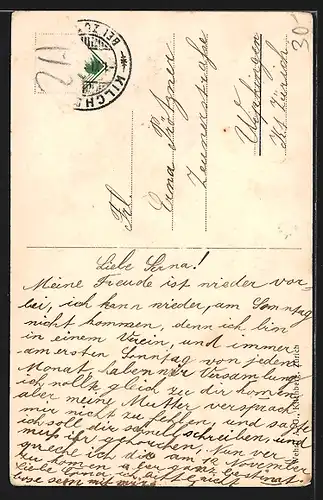 30.-
KILCHB
BEI ZÜ
Frl.
Erna
Zeunerstraße
Kt. Zürich
Liebe Erna!
Meine Freude ist wieder vor-
bei, ich kann wieder, am Sonntag
nicht kommen, denn ich bin
in einem Verein, und immer
am ersten Sonntag von jedem
Monat haben wir Versammlung
ich wollte gleich zu dir kommen
aber meine Mutter versprach
mir nicht zu fehlen, und sagte
ich soll dir schnell schreiben, und
muss ihr gehorchen. Nun ver-
spreche ich dir am November
zu kommen aber ganz bestimmt
Liebe Erna
Kilchberg - Zürich